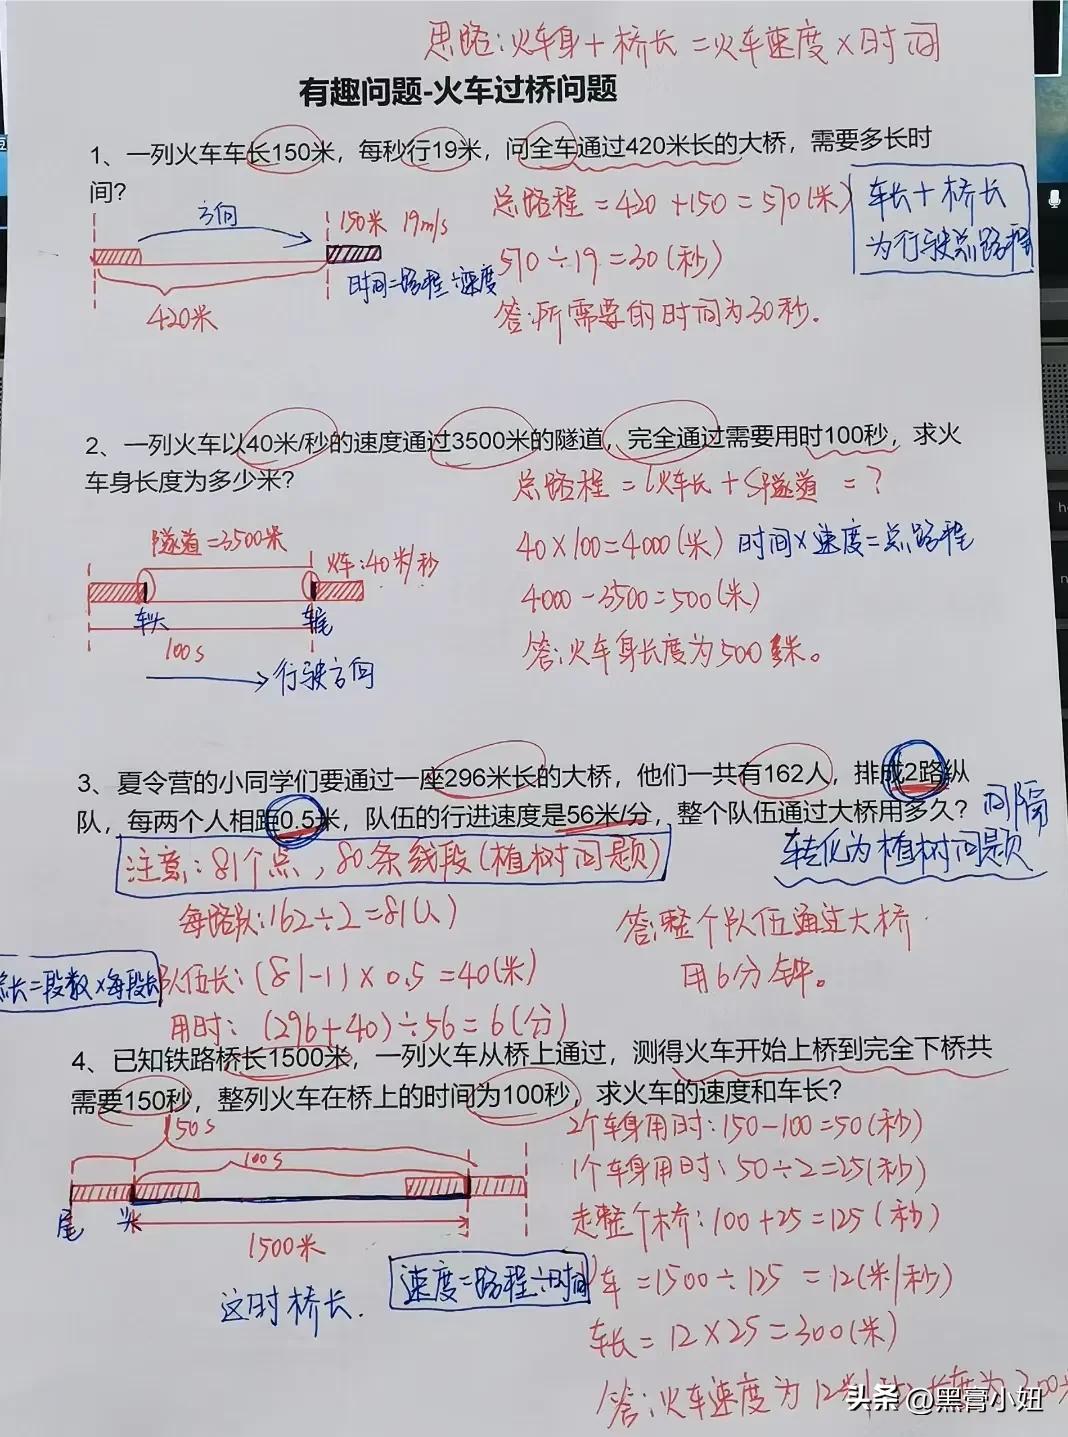 思路:火车身+桥长=火车速度×时间
有趣问题-火车过桥问题
1、一列火车车长150米，每秒行19米，问全车通过420米长的大桥，需要多长时
间?
方向
150米 19m/s
420米
时间=路程÷速度
总路程=420+150=570(米)
570÷19=30(秒)
答:所需要的时间为30秒.
车长+桥长
为行驶总路程
2、一列火车以40米/秒的速度通过3500米的隧道，完全通过需要用时100秒，求火
车身长度为多少米?
隧道=3500米
火车:40米/秒
车头
车尾
100s
行驶方向
总路程=L火车长+S隧道=?
40×100=4000(米) 时间×速度=总路程
4000-3500=500(米)
答:火车身长度为500米。
3、夏令营的小同学们要通过一座296米长的大桥，他们一共有162人，排成2路纵
队，每两个人相距0.5米，队伍的行进速度是56米/分，整个队伍通过大桥用多久?
间隔
转化为植树问题
注意:81个点,80条线段(植树问题)
每路队:162÷2=81(人)
总长=段数×每段长
队伍长:(81-1)×0.5=40(米)
用时:(296+40)÷56=6(分)
答:整个队伍通过大桥
用6分钟。
4、已知铁路桥长1500米，一列火车从桥上通过，测得火车开始上桥到完全下桥共
需要150秒，整列火车在桥上的时间为100秒，求火车的速度和车长?
150s
100s
尾 头
1500米
这时桥长.
速度=路程÷时间
2个车身用时:150-100=50(秒)
1个车身用时:50÷2=25(秒)
走整个桥:100+25=125(秒)
V车=1500÷125=12(米/秒)
车长=12×25=300(米)
答:火车速度为12米/秒
长度为300米
头条 @黑膏小妞